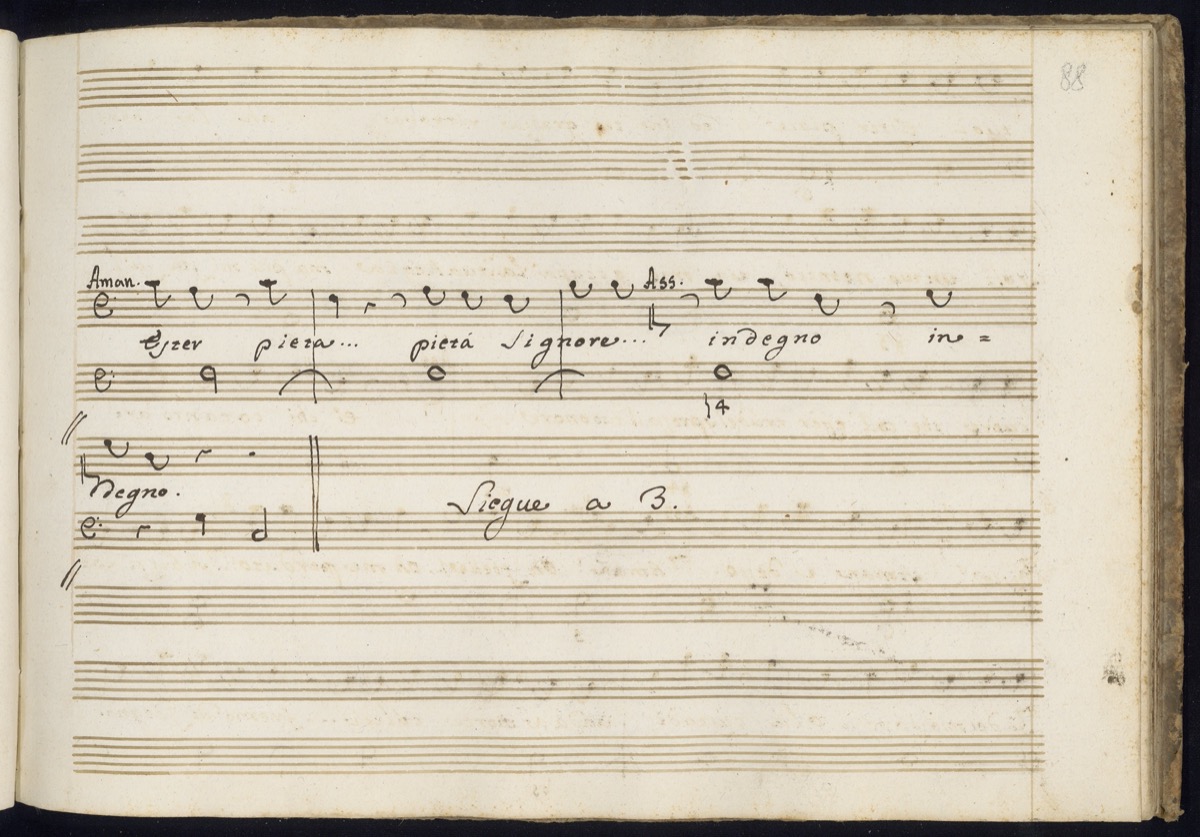 88
Aman. Ass.
Ester pieta... pietá Signore... indegno in=
4
degno.
Siegue a 3.